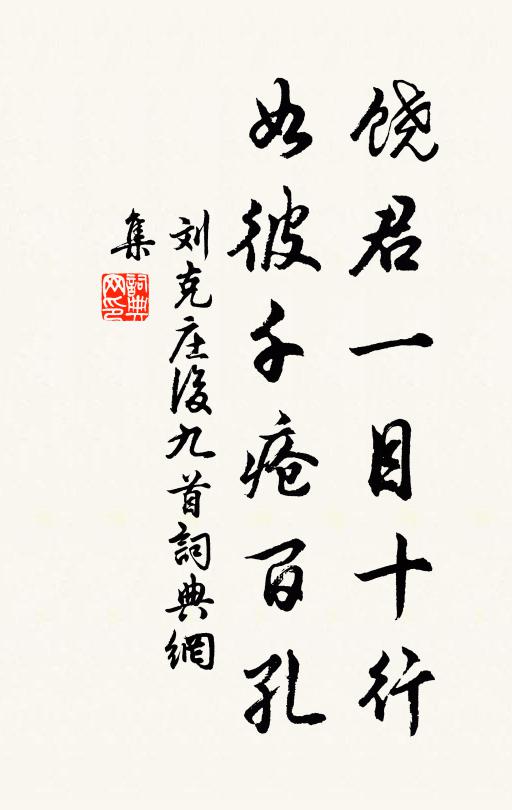 饶君一目十行
如彼千疮百孔
刘克庄後九首詞典網
集
詞典网印